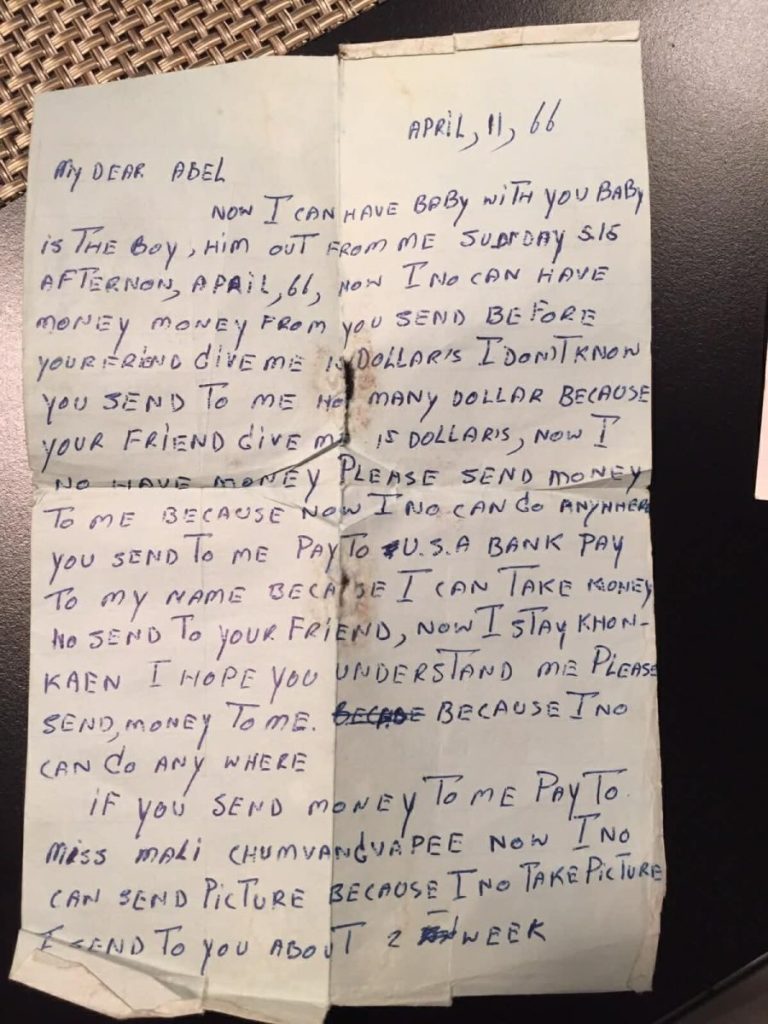 APRIL, 11, 66
MY DEAR ABEL
NOW I CAN HAVE BABY WITH YOU BABY
IS THE BOY, HIM OUT FROM ME SUNDAY 5.15
AFTERNON, APRIL, 66, NOW I NO CAN HAVE
MONEY MONEY FROM YOU SEND BEFORE
YOUR FRIEND GIVE ME 15 DOLLAR'S I DON'T KNOW
YOU SEND TO ME HOW MANY DOLLAR BECAUSE
YOUR FRIEND GIVE ME 15 DOLLARS, NOW I
NO HAVE MONEY PLEASE SEND MONEY
TO ME BECAUSE NOW I NO CAN GO ANYWHERE
YOU SEND TO ME PAY TO U.S.A BANK PAY
TO MY NAME BECAUSE I CAN TAKE MONEY
NO SEND TO YOUR FRIEND, NOW I STAY KHON-
KAEN I HOPE YOU UNDERSTAND ME PLEASE
SEND, MONEY TO ME. BECAUSE I NO
CAN GO ANY WHERE
IF YOU SEND MONEY TO ME PAY TO
MISS MALI CHUMVANGVAPEE NOW I NO
CAN SEND PICTURE BECAUSE I NO TAKE PICTURE
I SEND TO YOU ABOUT 2 WEEK